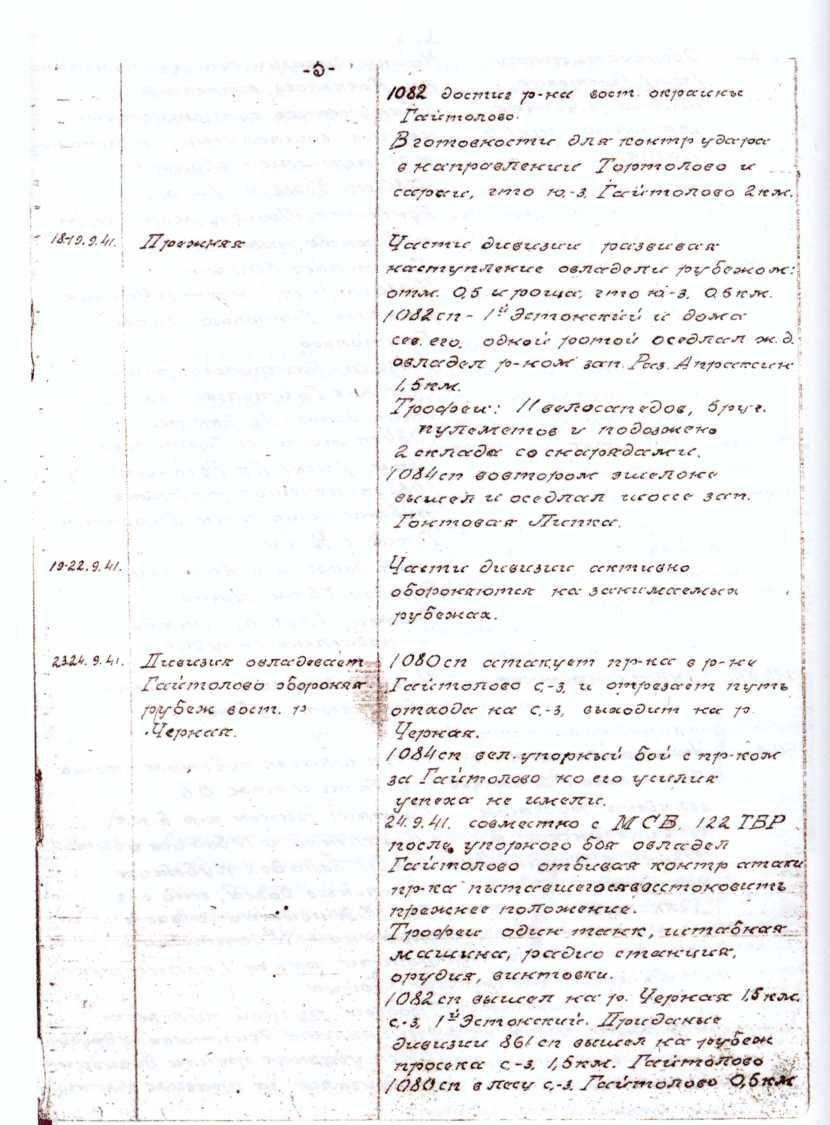 -5-
1082 достиг р-на вост. окраины
Гайтолово.
В готовности для контр удара
в направлении Тортолово и
сараи, что ю.-з. Гайтолово 2 км.
18-19.9.41. Прежняя
Части дивизии развивая
наступление овладели рубежом:
отм. 0,5 и роща, что ю-з. 0,5 км.
1082 сп - 1ый Эстонский и дома
сев. его, одной ротой оседлал ж.д.
овладел р-ном зап. Раз. Апраксин
1,5 км.
Трофеи: 11 велосапедов, 5 руч.
пулеметов и подозжено
2 склада со снарядами.
1084 сп вовтором эшелоне
вышел и оседлал шоссе зап.
Гонтовая Липка.
19-22.9.41. Части дивизии активно
обороняются на занимаемых
рубежах.
23.24.9.41. Дивизия овладевает
Гайтолово обороняя
рубеж вост. р
Черная.
1080 сп атакует пр-ка в р-не
Гайтолово с.-з. и отрезает путь
отхода на с.-з, выходит на р.
Черная.
1084 сп вел. упорный бой с пр-ком
за Гайтолово но его усилия
успеха не имели.
24.9.41. совместно с МСБ. 122 ТБР
после упорного боя овладел
Гайтолово отбивая контр атаки
пр-ка пытавшегося восстоновить
прежнее положение.
Трофеи один танк, штабная
машина, радио станция,
орудия, винтовки.
1082 сп вышел на р. Черная 1,5 км.
с.-з. 1ый Эстонский. Приданые
дивизии 861 сп вышел на рубеж
просека с.-з. 1,5 км. Гайтолово
1080 сп в лесу с.-з. Гайтолово 0,5 км